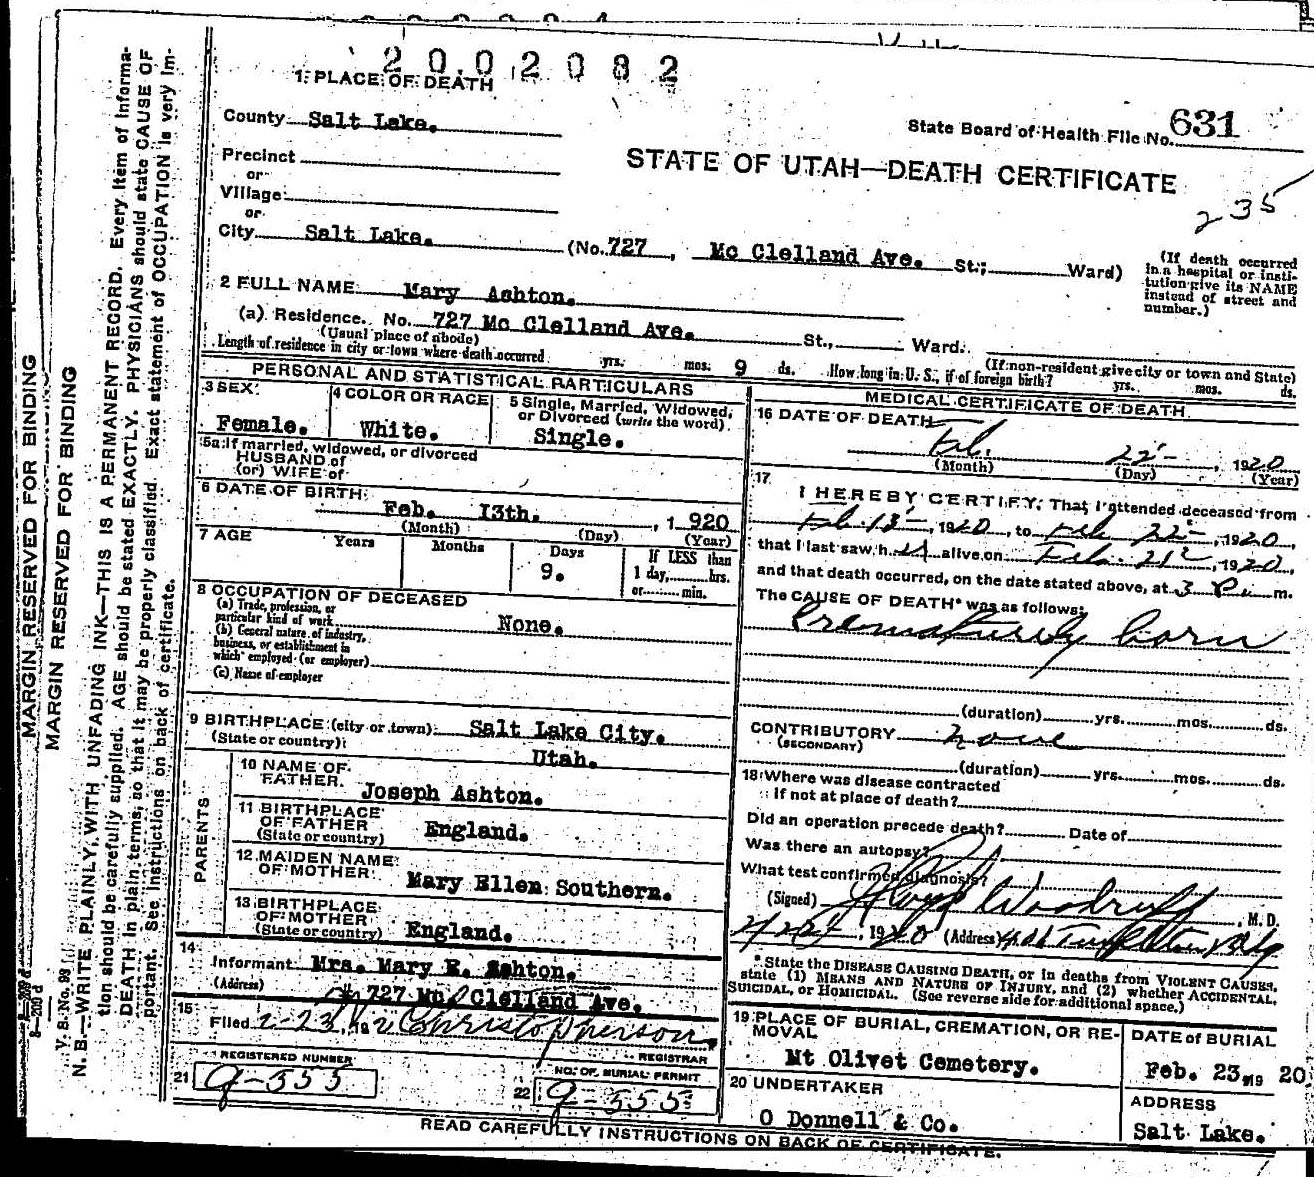 2002082
1. PLACE OF DEATH
County Salt Lake.
State Board of Health File No. 631
Precinct
or
STATE OF UTAH—DEATH CERTIFICATE
Village
or
235
City Salt Lake. (No. 727, Mc Clelland Ave. St.; Ward)
(If death occurred in a hospital or institution give its NAME instead of street and number.)
2 FULL NAME Mary Ashton.
(a) Residence. No. 727 Mc Clelland Ave. St., Ward.
(Usual place of abode) (If non-resident give city or town and State)
Length of residence in city or town where death occurred yrs. mos. 9 ds. How long in U. S., if of foreign birth? yrs. mos. ds.
PERSONAL AND STATISTICAL PARTICULARS
3 SEX
Female.
4 COLOR OR RACE
White.
5 Single, Married, Widowed, or Divorced (write the word)
Single.
5a If married, widowed, or divorced
HUSBAND of
(or) WIFE of
6 DATE OF BIRTH
Feb. 13th. , 1 920
(Month) (Day) (Year)
7 AGE Years Months Days If LESS than
9. 1 day, hrs.
or min.
8 OCCUPATION OF DECEASED
(a) Trade, profession, or
particular kind of work None.
(b) General nature of industry,
business, or establishment in
which employed (or employer)
(c) Name of employer
9 BIRTHPLACE (city or town) Salt Lake City.
(State or country) Utah.
PARENTS
10 NAME OF FATHER Joseph Ashton.
11 BIRTHPLACE OF FATHER
(State or country) England.
12 MAIDEN NAME OF MOTHER Mary Ellen Southern.
13 BIRTHPLACE OF MOTHER
(State or country) England.
14
Informant Mrs. Mary E. Ashton.
(Address) # 727 Mc Clelland Ave.
15
Filed 2-23 Christopherson
REGISTRAR
REGISTERED NUMBER
21 9-555
NO. OF BURIAL PERMIT
22 9-555
MEDICAL CERTIFICATE OF DEATH
16 DATE OF DEATH
Feb. 22 , 1920
(Month) (Day) (Year)
17
I HEREBY CERTIFY, That I attended deceased from
Feb 13 , 1920, to Feb 22 , 1920,
that I last saw h er alive on Feb. 21 , 1920,
and that death occurred, on the date stated above, at 3 P. m.
The CAUSE OF DEATH* was as follows:
Prematurely born
(duration) yrs. mos. ds.
CONTRIBUTORY none
(SECONDARY)
(duration) yrs. mos. ds.
18 Where was disease contracted
If not at place of death?
Did an operation precede death? Date of
Was there an autopsy?
What test confirmed diagnosis?
(Signed) Woodruff, M. D.
, 1920 (Address) Templeton Bldg
* State the DISEASE CAUSING DEATH, or in deaths from VIOLENT CAUSES,
state (1) MEANS AND NATURE OF INJURY, and (2) whether ACCIDENTAL,
SUICIDAL, or HOMICIDAL. (See reverse side for additional space.)
19 PLACE OF BURIAL, CREMATION, OR REMOVAL
Mt Olivet Cemetery.
DATE of BURIAL
Feb. 23, 19 20
20 UNDERTAKER
O Donnell & Co.
ADDRESS
Salt Lake.
READ CAREFULLY INSTRUCTIONS ON BACK OF CERTIFICATE.
MARGIN RESERVED FOR BINDING
MARGIN RESERVED FOR BINDING
V. B. No. 98
N. B.—WRITE PLAINLY, WITH UNFADING INK—THIS IS A PERMANENT RECORD. Every item of information should be carefully supplied. AGE should be stated EXACTLY. PHYSICIANS should state CAUSE OF DEATH in plain terms, so that it may be properly classified. Exact statement of OCCUPATION is very important. See instructions on back of certificate.